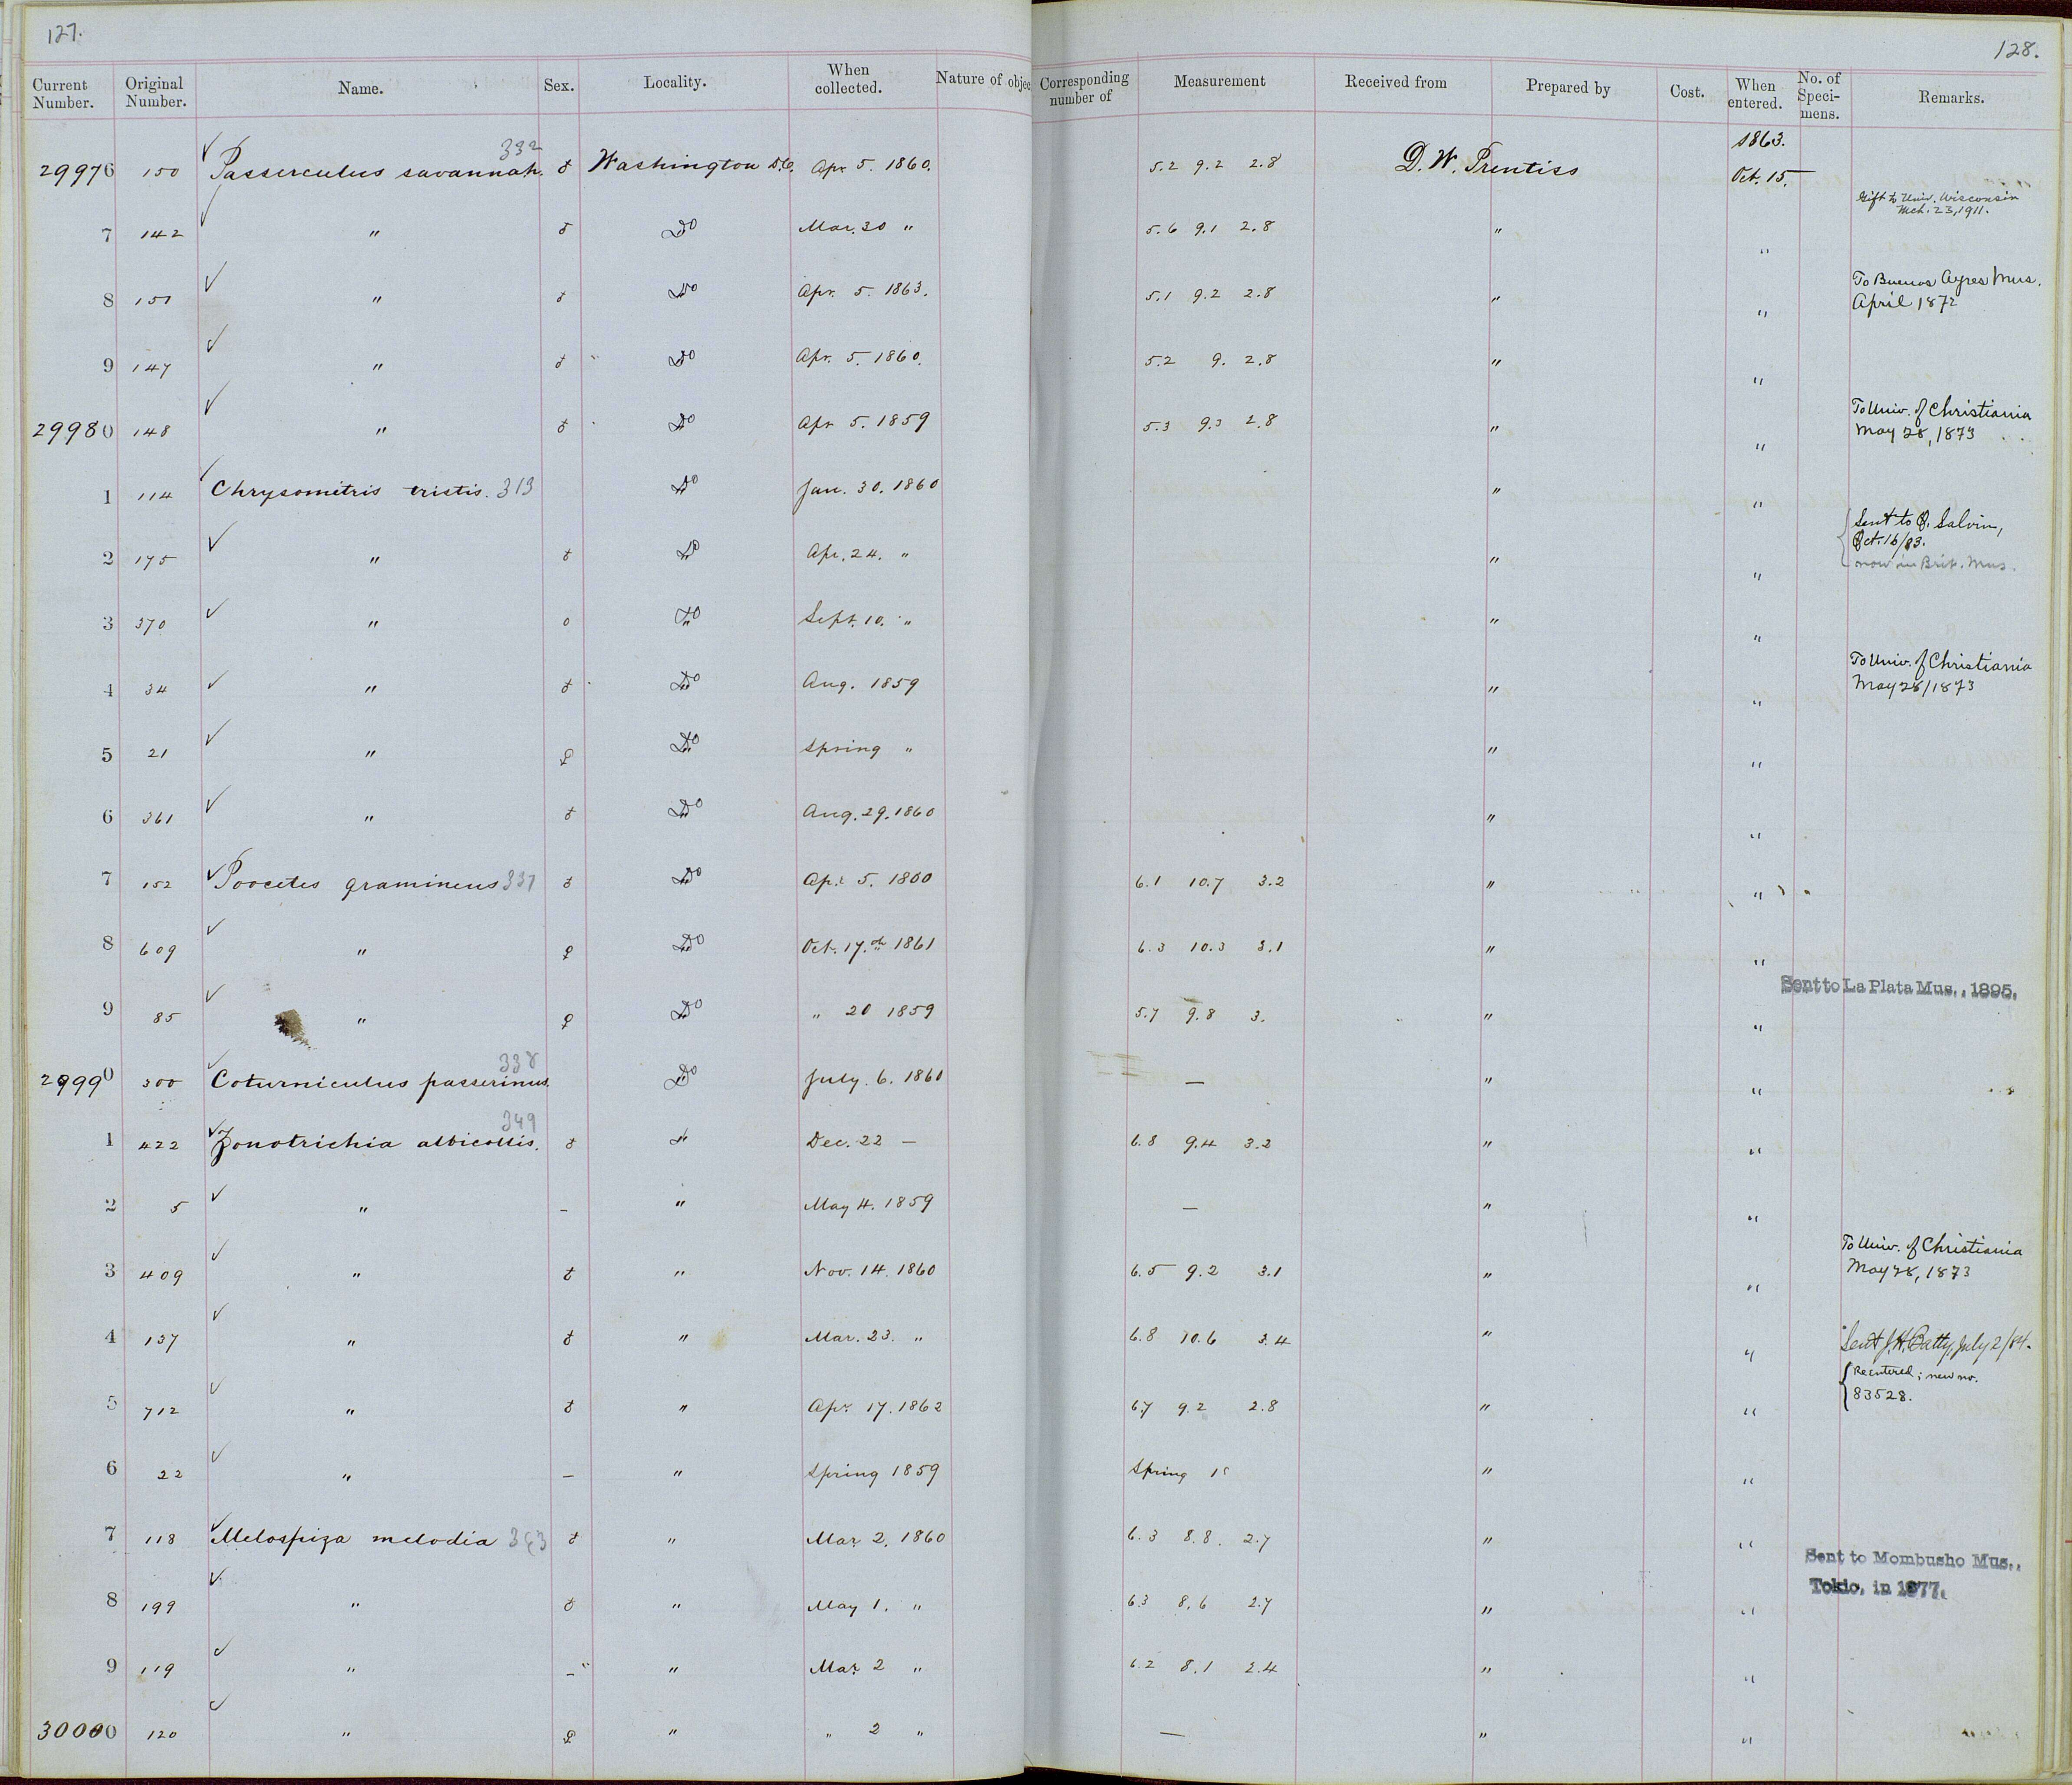 127.
128.
Current Number. Original Number. Name. Sex. Locality. When collected. Nature of objec Corresponding number of Measurement Received from Prepared by Cost. When entered. No. of Speci- mens. Remarks.
1863.
29976 150 ✓ Passerculus savannah. 332 ♂ Washington D.C. Apr 5. 1860. 5.2 9.2 2.8 D. W. Prentiss Oct. 15.
Gift to Univ. Wisconsin
Mch. 23, 1911.
7 142 ✓ " ♂ Do Mar. 30 " 5.6 9.1 2.8 " "
8 151 ✓ " ♂ Do Apr. 5. 1863. 5.1 9.2 2.8 " " To Buenos Ayres Mus.
April 1872
9 147 ✓ " ♂ Do Apr. 5. 1860. 5.2 9. 2.8 " "
29980 148 ✓ " ♂ Do Apr 5. 1859 5.3 9.3 2.8 " " To Univ. of Christiania
May 28, 1873
1 114 ✓ Chrysomitris tristis. 313 Do Jan. 30. 1860 " "
2 175 ✓ " ♂ Do Apr. 24. " " " Sent to O. Salvin,
Oct. 16/83.
now in Brit. Mus.
3 370 ✓ " o Do Sept. 10. " " "
4 34 ✓ " ♂ Do Aug. 1859 " " To Univ. of Christiania
May 28/1873
5 21 ✓ " ♀ Do Spring " " "
6 361 ✓ " ♂ Do Aug. 29. 1860 " "
7 152 ✓ Poocetes gramineus 337 ♂ Do Apr. 5. 1860 6.1 10.7 3.2 " "
8 609 ✓ " ♀ Do Oct. 17.th 1861 6.3 10.3 3.1 " "
Sent to La Plata Mus., 1895.
9 85 ✓ " ♀ Do " 20 1859 5.7 9.8 3. " "
29990 300 ✓ Coturniculus passerinus. 338 Do July. 6. 1860 — " "
1 422 ✓ Zonotrichia albicollis. 349 ♂ " Dec. 22 — 6.8 9.4 3.2 " "
2 5 ✓ " – " May 4. 1859 — " "
3 409 ✓ " ♂ " Nov. 14. 1860 6.5 9.2 3.1 " " To Univ. of Christiania
May 28, 1873
4 137 ✓ " ♂ " Mar. 23. " 6.8 10.6 3.4 " " Sent J. H. Batty, July 2/84.
{Reentered; new no.
83528.
5 712 ✓ " ♂ " Apr. 17. 1862 6.7 9.2 2.8 " "
6 22 ✓ " – " Spring 1859 Spring " "
7 118 ✓ Melospiza melodia 363 ♂ " Mar. 2. 1860 6.3 8.8. 2.7 " "
Sent to Mombusho Mus.,
Tokio, in 1877.
8 199 ✓ " ♂ " May 1. " 6.3 8.6 2.7 " "
9 119 ✓ " – " Mar. 2 " 6.2 8.1 2.4 " "
30000 120 ✓ " ♀ " " 2 " — " "